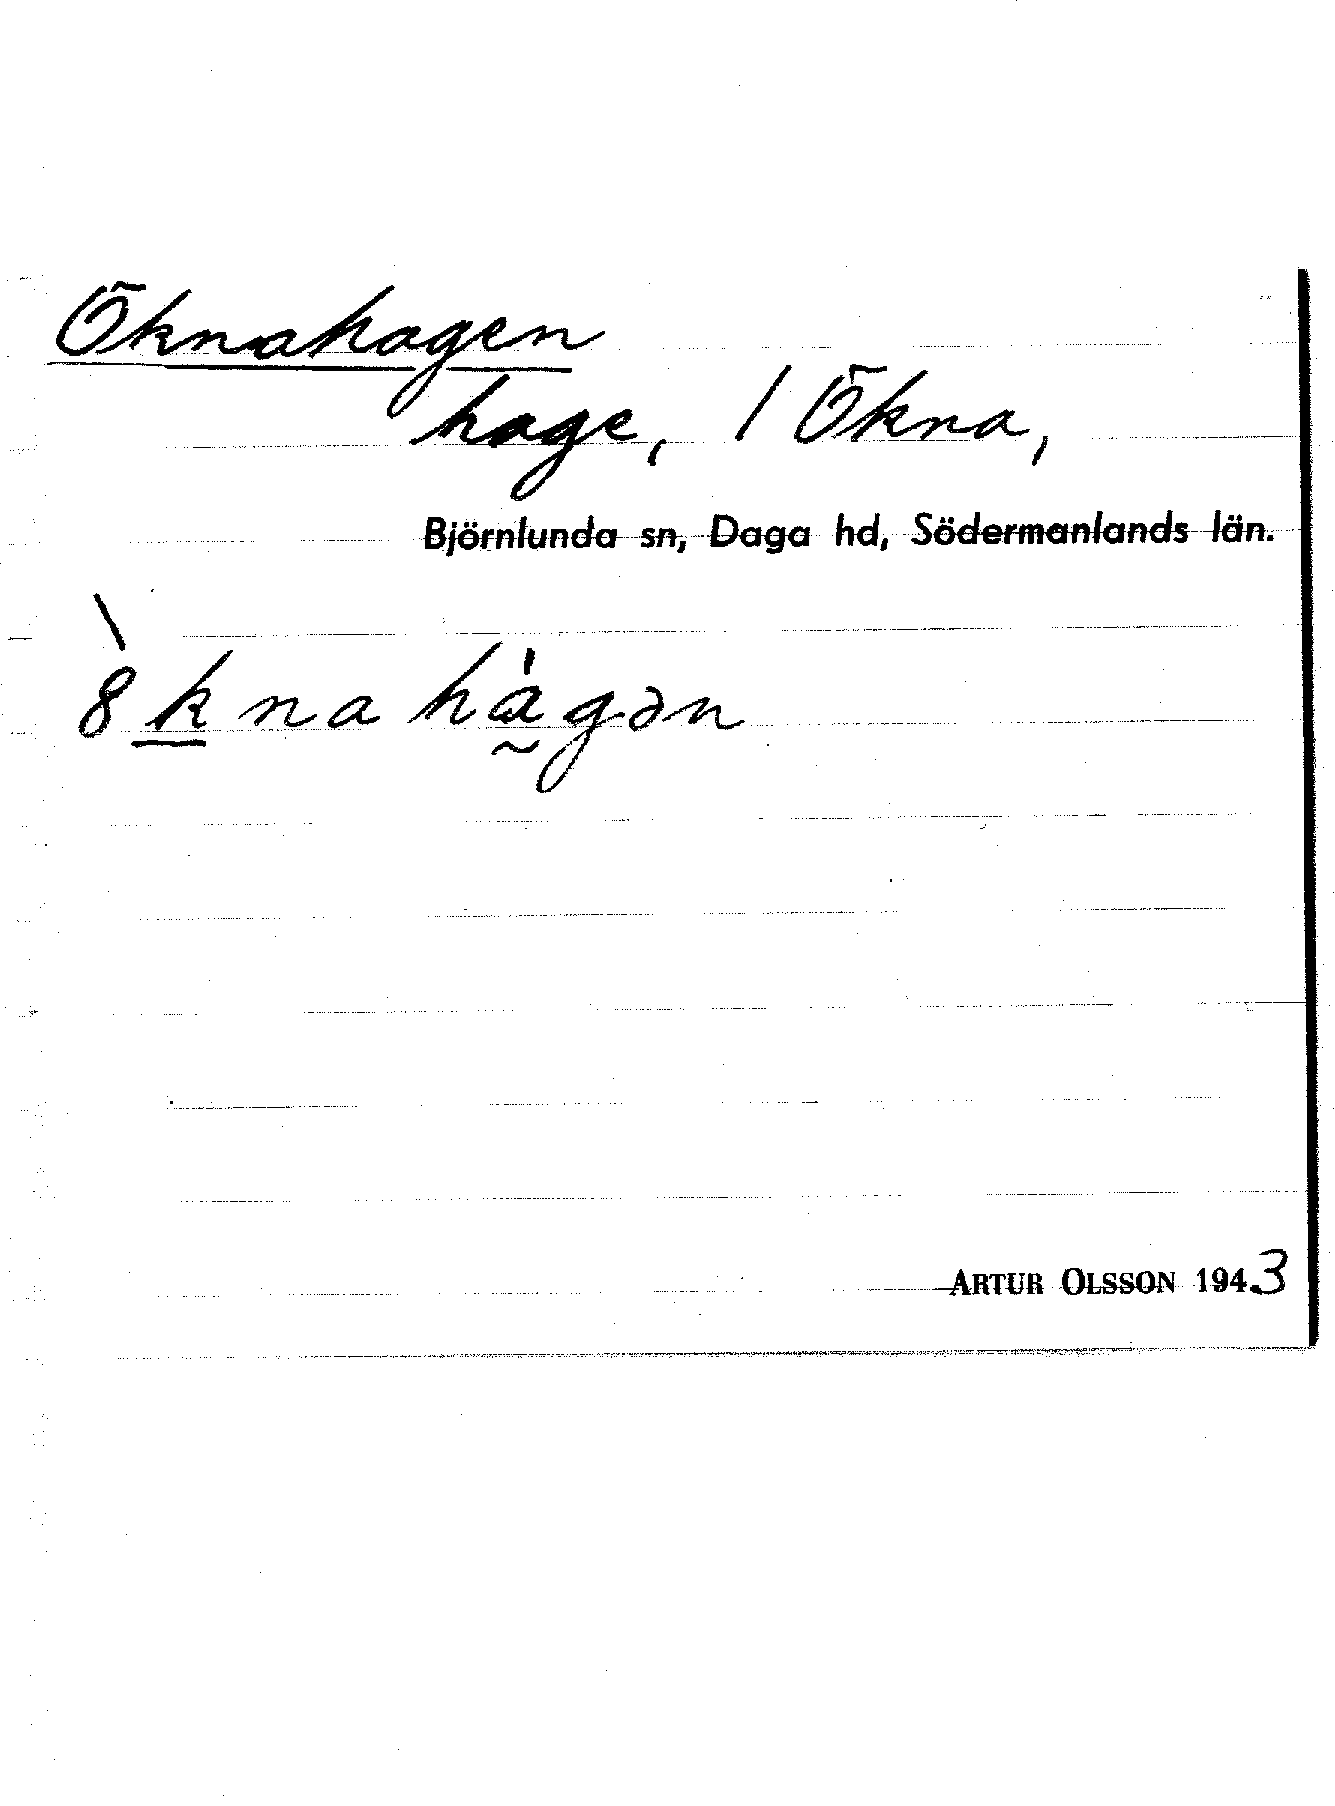 Öknahagen
hage, / Ökna,
Björnlunda sn, Daga hd, Södermanlands län.
ˋ8k̲nahà̰gən
ARTUR OLSSON 1943